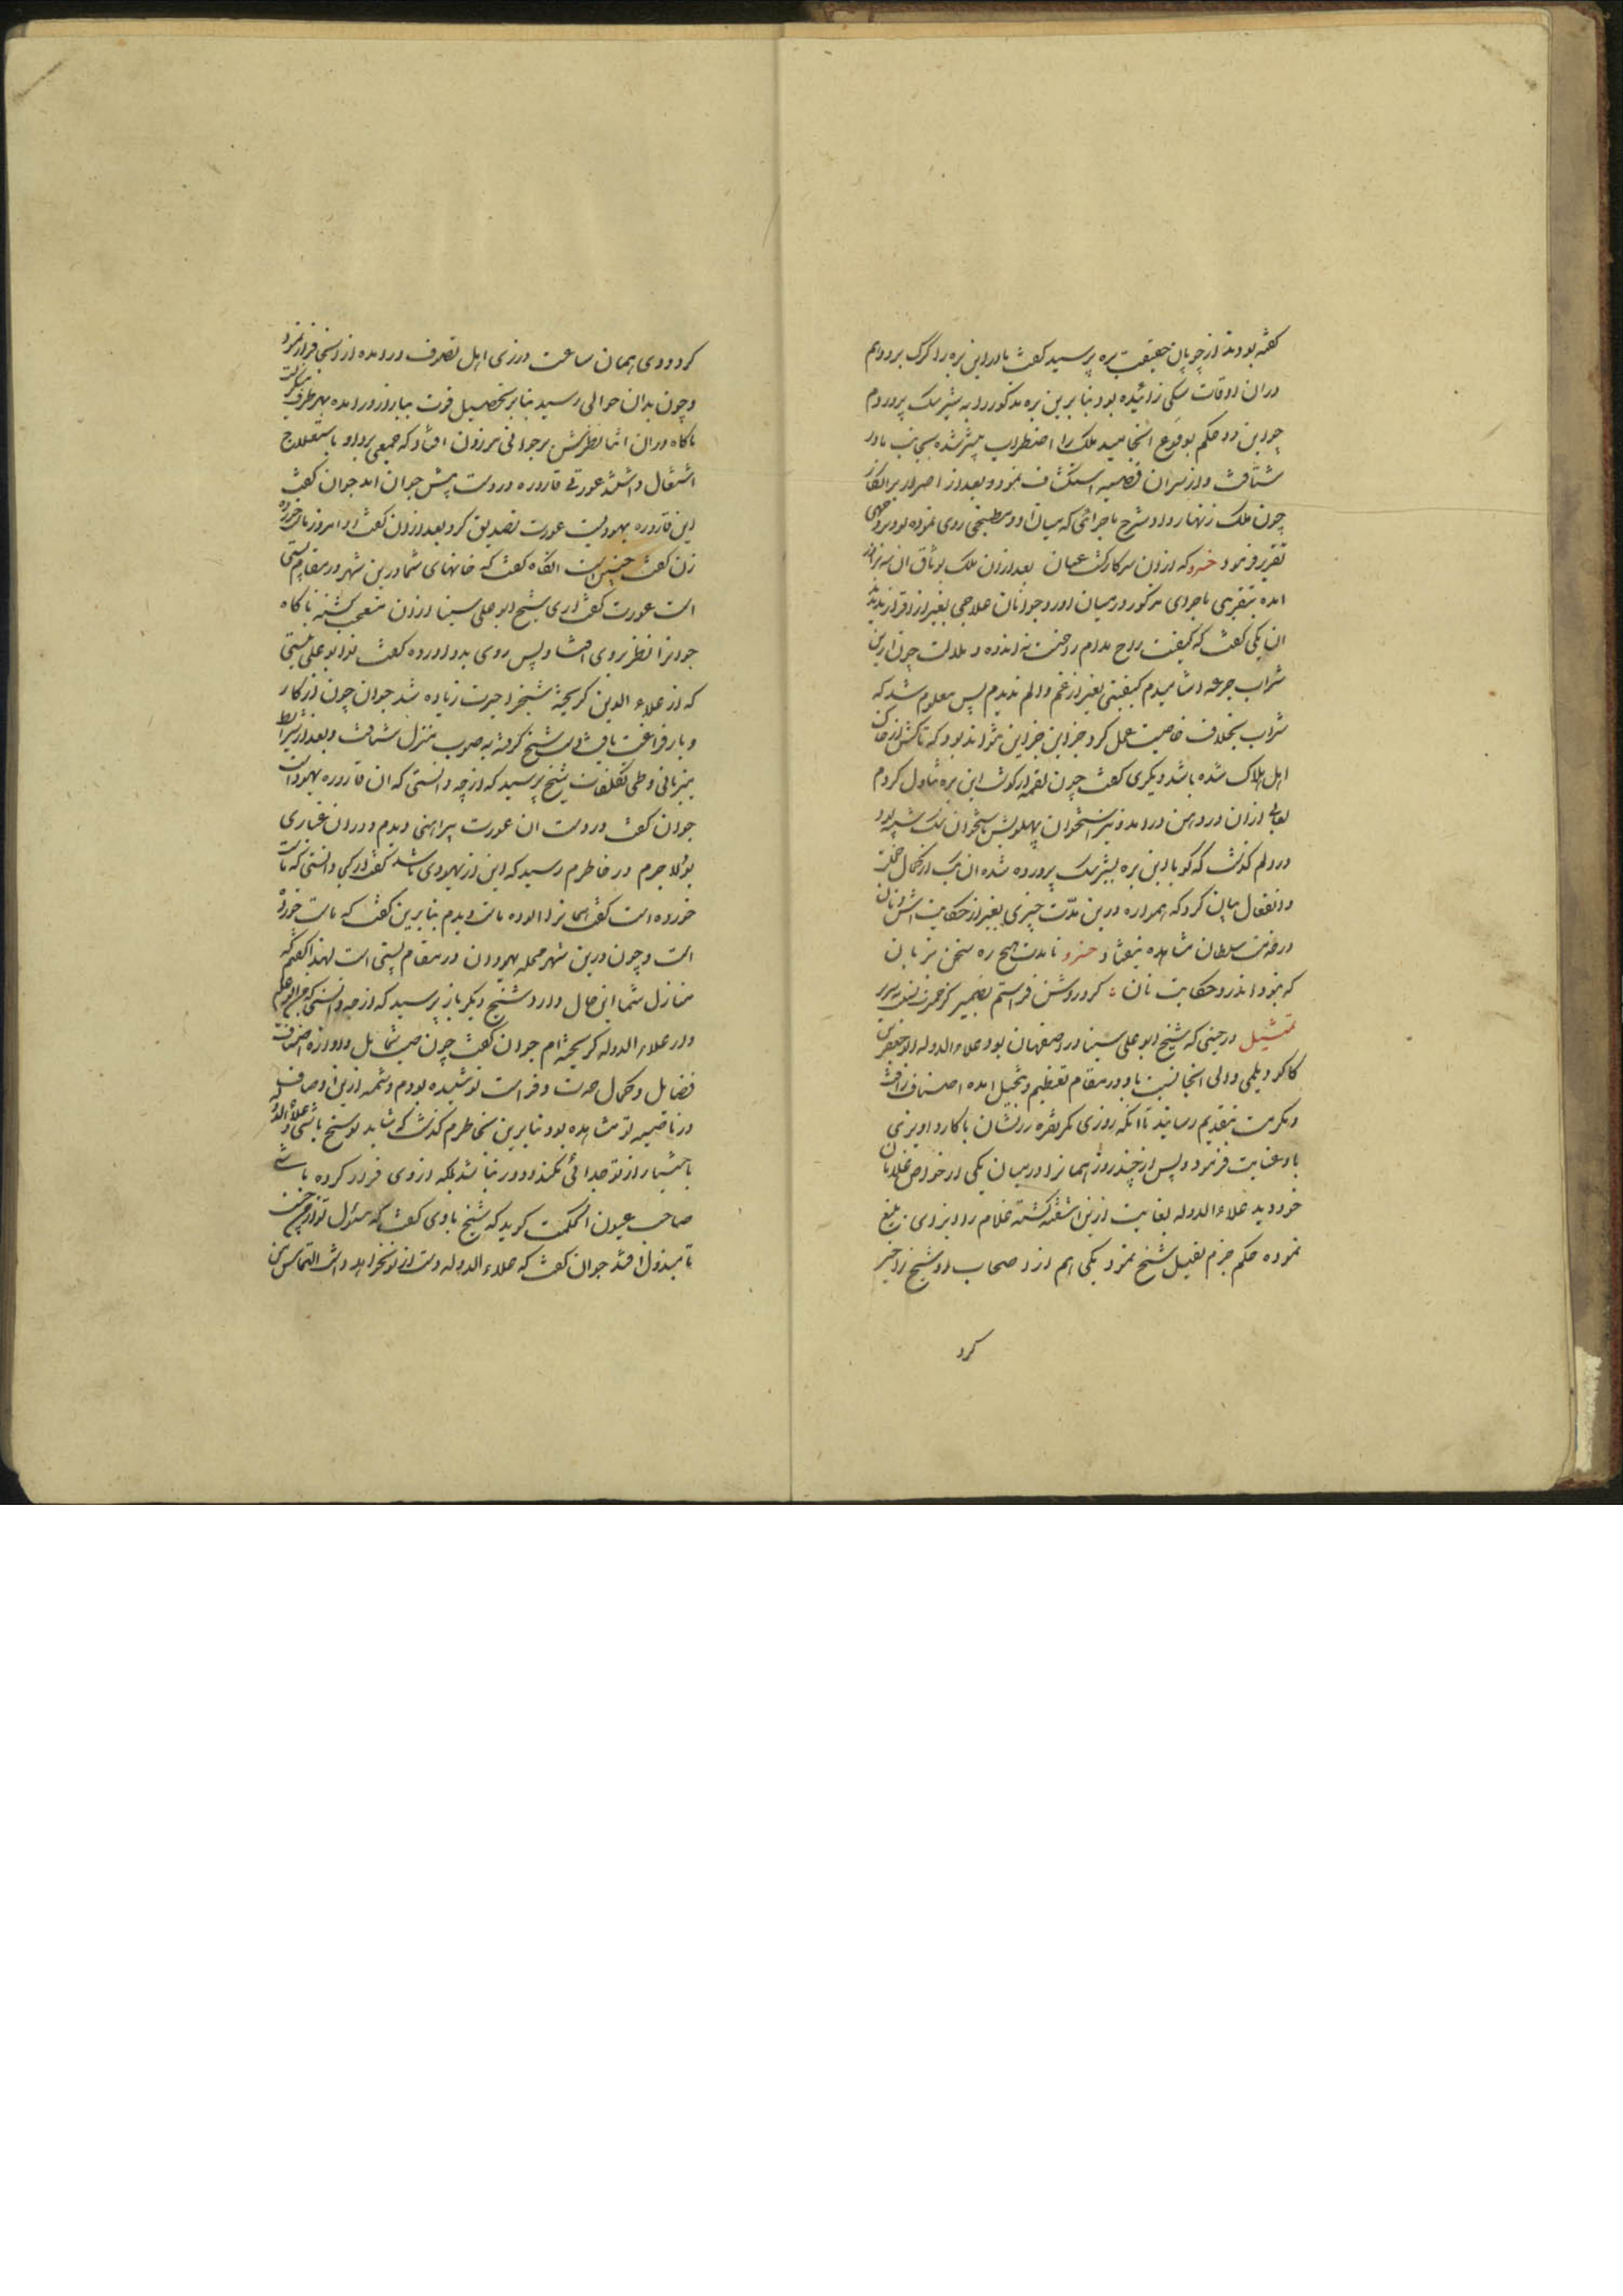 گفته بودند از چوپان حقیقت بره پرسید گفت مادر این بره را گرگ برد و هم
در ان اوقات سکی زائیده بود بنا برین بره مذکور را به شیر سک پروردم
چون این دو حکم بوقوع انجامید ملک را اضطراب بیشتر شده بجانب مادر
شتافت و از سر ان قضیه استکشاف نمود و بعد از اصرار بر انکار
چون ملک زنهار داد و شرح ماجرائی که میان او و مطبخی روی نموده بود بر وجهی
تقریر فرمود خسرو که از ان سر کار کشت عیان بعد از ان ملک بوثاق ان سه برادر
امده بتقریبی ماجرای مذکور در میان اورد جوانان علاجی بغیر از اقرار ندیدند
ان یکی گفت که کیفیت راح مدام راحت نه اندوه و ملالت چون ازین
شراب جرعه اشامیدم کیفیتی بغیر از غم و الم ندیدم پس معلوم شد که
شراب بخلاف خاصیت عمل کرد جز این نتواند بود که تاکش از خاک
اهل هلاک شده باشد دیکری گفت چون لقمه از گوشت این بره تناول کردم
لعابی از ان در دهن در امد و نیز استخوان پهلویش باستخوان سک شبیه بود
در دلم گذشت که گویا این بره بشیر سک پرورده شده ان دیگر از کمال خجلت
و انفعال بیان کرد که همواره درین مدت چیزی بغیر از حکایت اش و نان
در خدمت سلطان مشاهده نیفتاد خسرو نامدت هیچ ره سخن بر زبان
که نبود اندرو حکایت نان کرد روشن فراستم بضمیر
تمثیل در حینی که شیخ ابو علی سینا در اصفهان بود علاء الدوله ابو جعفر بن
کاکو دیلمی والی انجا نسبت باو در مقام تعظیم و تبجیل امده اصناف رافت
و مکرمت بتقدیم رسانید تا انکه روزی کمر نقره زرنشان با کارد اویزی
باو عنایت فرمود و پس از چند روز همانرا در میان یکی از خواص غلامان
خود دید علاء الدوله بغایت ازین اشفته کشته غلام را
نموده حکم جزم بقتل شیخ نمود یکی هم از اصحاب او شیخ را خبر
کرد
کرد و وی همان ساعت در زی اهل تصوف در امده از انجا فرار نمود
و چون بدان حوالی رسید بنا بر تحصیل قوت ببازار در امده بهر طرف میکشت
ناکاه در ان اثنا نظرش بر جوانی بر دکان افتاد که جمعی بر او باستعلاج
اشتغال داشتند عورتی قاروره در دست پیش جوان امد جوان گفت
این قاروره یهودیست عورت تصدیق کرد بعد از ان گفت او امروز ماست خورده
زن گفت چنین است انگاه گفت که خانهای شما درین شهر در مقام پستی
است عورت گفت اری شیخ ابو علی سینا از ان متعجب کشته ناکاه
جوانرا نظر بر وی افتاد پس روی بدو اورده گفت تو ابو علی نیستی
که از علاء الدین کریخته شیخ را حیرت زیاده شد جوان چون از کار
و بار فراغت یافت دست شیخ گرفته به صوب منزل شتافت و بعد از شرایط
میزبانی و طی تکلفات شیخ پرسید که از چه دانستی که ان قاروره یهود است
جوان گفت در دست ان عورت پیراهنی دیدم و در ان غیاری
بود لا جرم در خاطرم رسید که این از یهودی باشد گفت از کجا دانستی که ماست
خورده است گفت همانرا الوده ماست دیدم بنا برین گفتم که ماست خورده
است و چون درین شهر محله یهودان در مقام پستی است لهذا گفتم که
منازل شما این حال دارد شیخ دیگر باز پرسید که از چه دانستی که من ابو علیم
و از علاء الدوله کریخته ام جوان گفت چون صیت شمایل و اوازه اصناف
فضایل و کمال حدت و فراست تو شنیده بودم و شمه ازین اوصاف
در ناصیه تو مشاهده بود بنا برین بخاطرم گذشت که شاید تو شیخ باشی و علاء الدوله
باختیار از تو جدائی نکند و دور نباشد بلکه از وی فرار کرده باشی
صاحب عیون الحکمت کوید که شیخ باوی گفت که مسئول تو از من چیست
تا مبذول افتد جوان گفت که علاء الدوله دست از تو نخواهد داشت التماس من